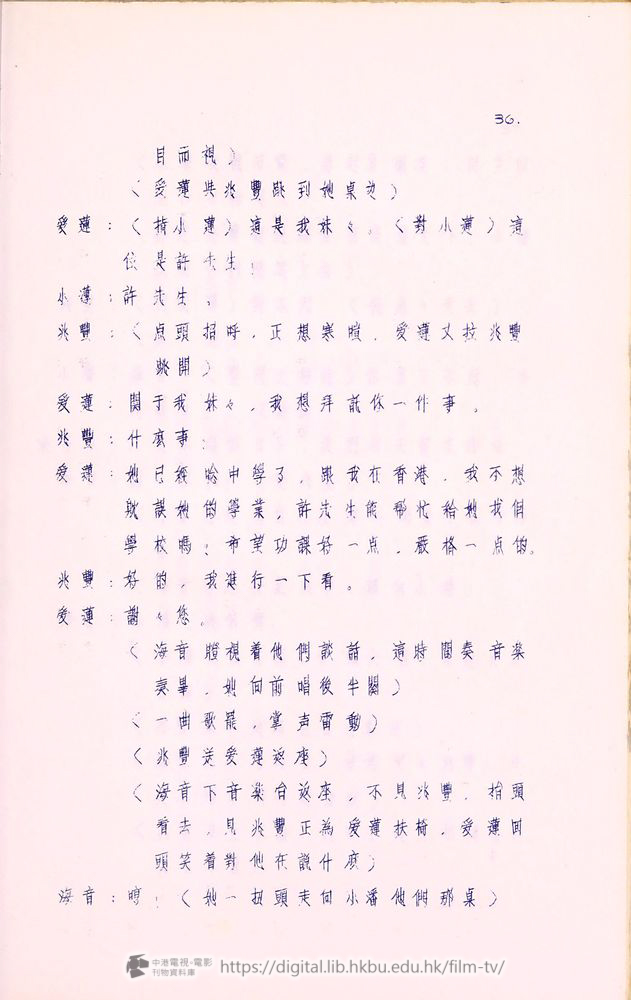 36.
目而視）
（愛蓮與兆豐跳到她桌边）
愛蓮：（指小蓮）這是我妹々。（對小蓮）這
位是許先生。
小蓮：許先生。
兆豐：（点頭招呼，正想寒暄，愛蓮又拉兆豐
跳開）
愛蓮：關于我妹々，我想拜託你一件事。
兆豐：什麽事？
愛蓮：她已經唸中學了，跟我在香港，我不想
躭誤她的學業，許先生能幫忙給她找個
學校嗎？希望功課好一点，嚴格一点的。
兆豐：好的，我進行一下看。
愛蓮：謝々您。
（海音瞪視着他們談話，這時間奏音楽
奏畢，她向前唱後半闋）
（一曲歌罷，掌声雷動）
（兆豐送愛蓮返座）
（海音下音楽台返座，不見兆豐，抬頭
看去，見兆豐正為愛蓮扶椅，愛蓮回
頭笑着對他在説什麽）
海音：哼！（她一扭頭走向小潘他們那桌）
中港電視·電影
刊物資料庫
https://digital.lib.hkbu.edu.hk/film-tv/